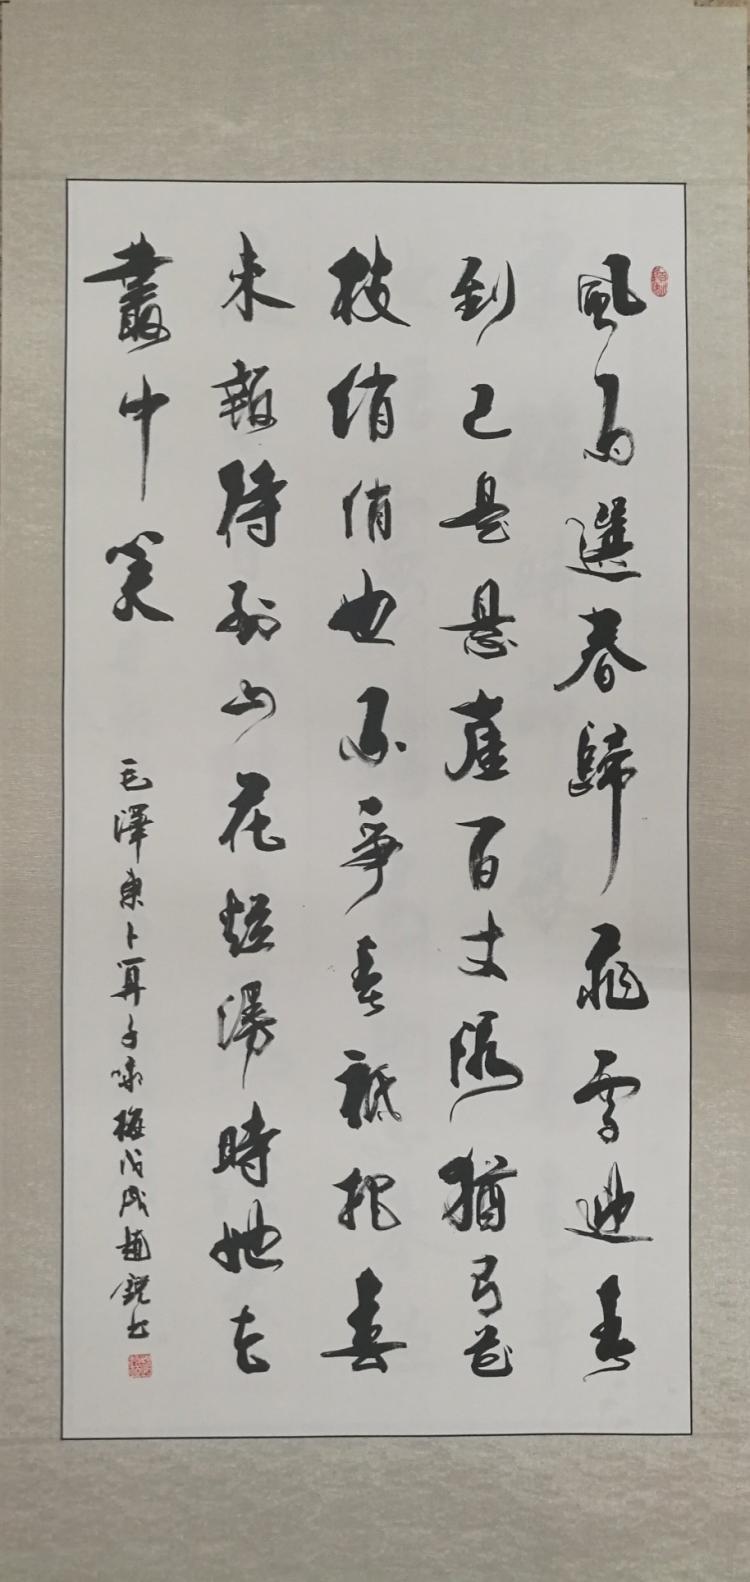 風雨選春歸飛雪迎春
到已是悬崖百丈冰猶有花
枝俏俏也不爭春祗把春
来報待到山花爛漫時她在
叢中笑
毛澤東卜算子咏梅戊戌趙銳书